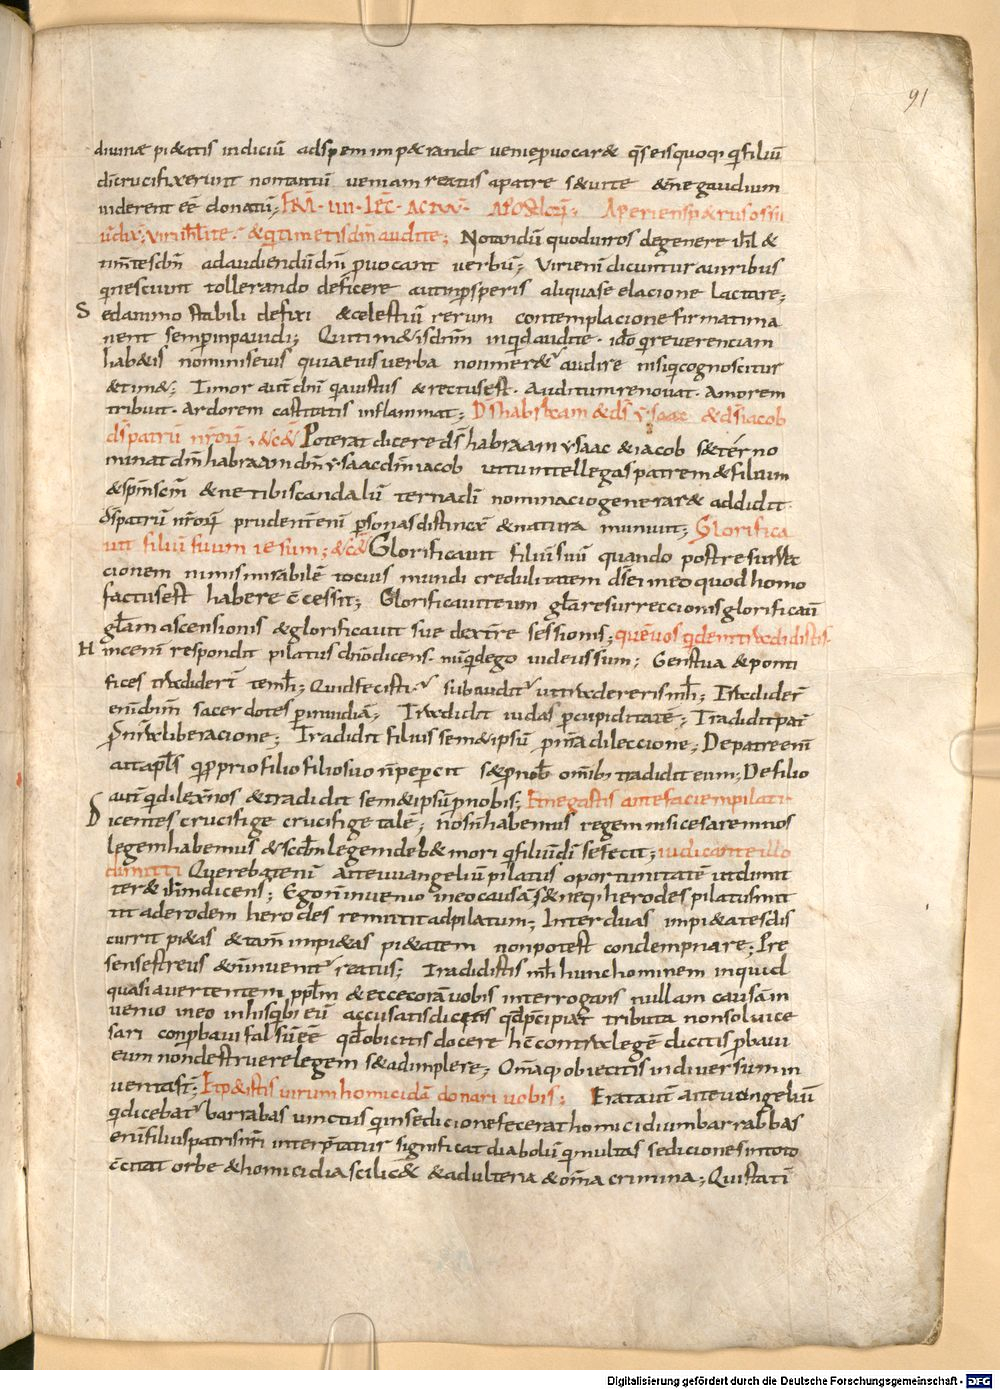 91
diuinae pi&atis indiciū adspem imp&rande uenię puocar& q̄seisquoq; q̇filiū
dīcrucifixerunt nontantū ueniam reatus apatre s&uite &nę gaudium
uiderent eē donatū;
uirisrłite. & q̇timetisdm̄ audite; Notandū quoduiros degenere isrł &
tim̄tesdm̄ adaudiendū dnī puocant uerbū; Virienī dicuntur auiribus
q̇nesciunt tollerando deficere autinpsperis aliquase elacione iactare;
S edanimo stabili defixi &celestiū rerum contemplacione firmatima
nent semp inpauidi; Quitim&isdnm̄ inquid audite. ido q̇reuerenciam
hab&is nominiseius quiaeius uerba nonmer&ur audire nisiq̇cognoscitur
&tim&; Timor aut̄ dnī q̇aiustus &rectusest. Auditumrenouat. Amorem
tribuit. Ardorem castitatis inflammat; Ds̄habraam &ds̄ ysaac &ds̄iacob
ds̄patrū nrōrū. &c& Poterat dicere ds̄ habraam ysaac &iacob s&ter no
minat dm̄habraam dm̄ysaacdm̄iacob utintellegas patrem &filium
&spm̄scm̄ &ne tibi scandalū ternadī nominacio generar& addidit
ds̄patrū nrōrū prudent̄enī psonas distincx̄ &natura muniuit; Glorifica
uit filiū suum iesum; &c& Glorificauit filiū suū quando postresurrec
cionem nimis mirabilē tocius mundi credulitatem ds̄ei meo quod homo
factusest habere c̄cessit; Glorificauiteum gła resurreccionis glorificauī
głam ascensionis &glorificauit sue dextrę sessionis; quēuos q̇demtradidistis.
H incenī respondit pilatus dnōdicens. nūq̇dego iudeussum; Genstua &ponti
fices tradiderī temħi; Quidfecisti. subauditur uttradererismħi; Tradider̄
enīdnm̄ sacerdotes pinuidiā; Tradidit iudas pcupiditatē; Tradiditpat̄
pnrā liberacione; Tradidit filius sem&ipsū pnrā dileccione; Depatre enī
aitapłs q̇pprio filio filiosuo n̄pepercit s&pnob̄ omib; tradidit eum; De filio
aut̄ q̇dilex̄nos &tradidit sem&ipsū pnobis; Etnegastis antefaciempilati
D icentes crucifige crucifige talē; n̄osn̄habemus regem nisicesaremnos
legemhabemus &scdm̄legemdeb& mori q̇filiumdī sefecit; iudicante illo
dimitti Querebatenī aiteuuangelium pilatus oportunitatē utdimit
ter& ihm̄dicens; Egon̄inuenio ineo causā s&neq; herodes pilatusmit
tit aderodem herodes remittit adpilatum; Inter duas impi&ates dis
currit pi&as &tam̄ impi&as pi&atem nonpotest condempnare; Pre
sensestreus &n̄inuenit̄ reatus; Tradidistis mħi hunchominem inquid
quasi auertentem ppłm &eccecorā uobis interrogans nullam causām
uenio ineo inhisq̇bi eū accusatisdicētis qđpcipiat tributa nonsolui ce
sari conpbaui falsū eē qđobicitis docere hēcontra legē dicitis pbaui
eum nondestruere legem s&adimplere; Om̄aq; obiectis indiuersum in
uentast; Etp&istis uirumhomicidā donari uobis; Erataut̄ aiteuangeliū
q̇dicebat̄ barrabas uinctus q̇insedicionefecerathomicidiumbarrabbas
enī filiuspatrisnrī interp̄tatur significat diabolū q̇multas sediciones intoto
c̄citat orbe &homicidia scilic& &adulteria &om̄a crimina; Quistatī
Digitalisierung gefördert durch die Deutsche Forschungsgemeinschaft - DFG